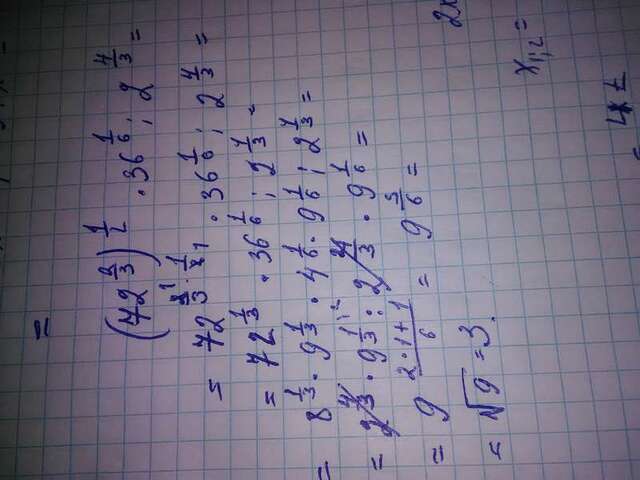 =
(72^{2/3})^{1/2} · 36^{1/6} : 2^{4/3} =
= 72^{2/3 · 1/2} · 36^{1/6} : 2^{4/3} =
= 72^{1/3} · 36^{1/6} : 2^{4/3} =
= 8^{1/3} · 9^{1/3} · 4^{1/6} · 9^{1/6} : 2^{4/3} =
= 2^{4/3} · 9^{1/3} : 2^{4/3} · 9^{1/6} =
= 9^{(2·1+1)/6} = 9^{3/6} =
= √9 = 3.
2x
x_{1;2} =